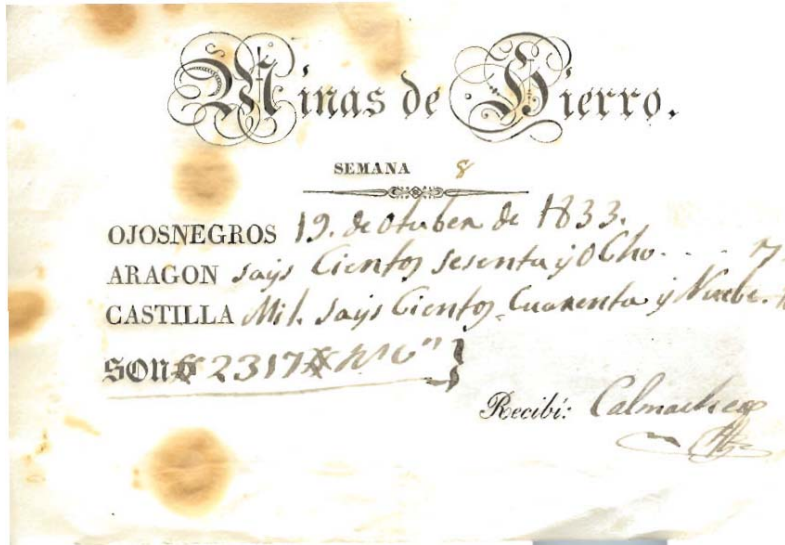 Minas de Hierro.
SEMANA 8
OJOSNEGROS 19. de Otuber de 1833.
ARAGON says Cientos sesenta y OCho
CASTILLA Mil. says Cientos Cuarenta y Nuebe.
SON 2317
Recibí: Calmache